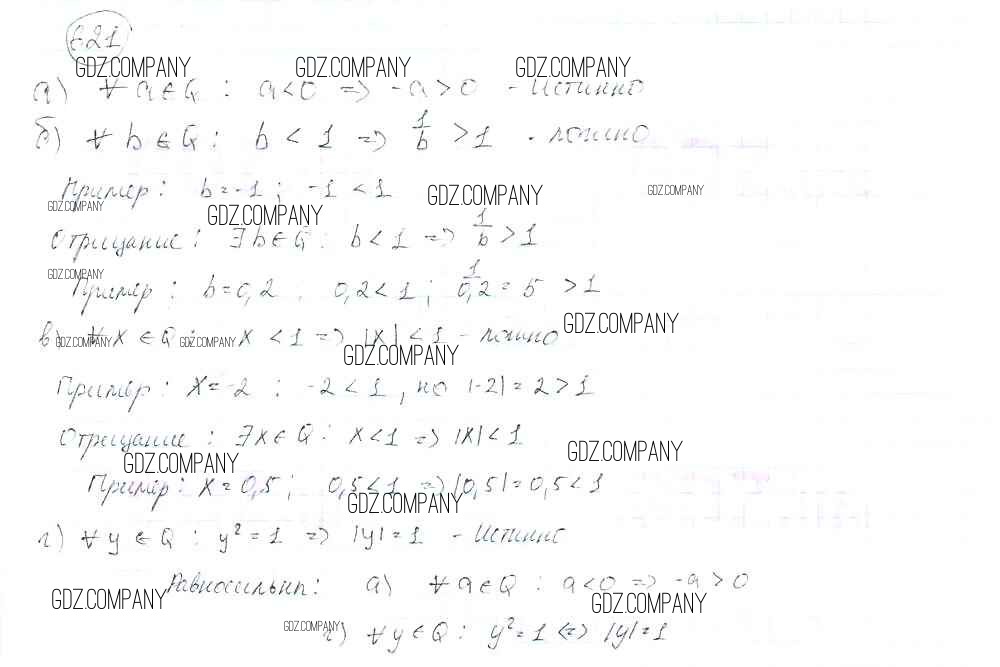 621
GDZ.COMPANY GDZ.COMPANY GDZ.COMPANY
а) ∀ a ∈ Q : a < 0 => -a > 0 - Истинно
б) ∀ b ∈ Q : b < 1 => 1/b > 1 - ложно
Пример: b = -1 ; -1 < 1
GDZ.COMPANY GDZ.COMPANY
GDZ.COMPANY GDZ.COMPANY
Отрицание : ∃ b ∈ Q : b < 1 => 1/b > 1
GDZ.COMPANY
Пример : b = 0,2 : 0,2 < 1 ; 1/0,2 = 5 > 1
GDZ.COMPANY
в) ∀ x ∈ Q : x < 1 => |x| < 1 - ложно
GDZ.COMPANY GDZ.COMPANY
GDZ.COMPANY
Пример : x = -2 : -2 < 1 , но |-2| = 2 > 1
Отрицание : ∃ x ∈ Q : x < 1 => |x| < 1
GDZ.COMPANY
GDZ.COMPANY
Пример : x = 0,5 ; 0,5 < 1 => |0,5| = 0,5 < 1
GDZ.COMPANY
г) ∀ y ∈ Q : y² = 1 => |y| = 1 - Истинно
Равносильны : а) ∀ a ∈ Q : a < 0 => -a > 0
GDZ.COMPANY GDZ.COMPANY
GDZ.COMPANY
г) ∀ y ∈ Q : y² = 1 <=> |y| = 1